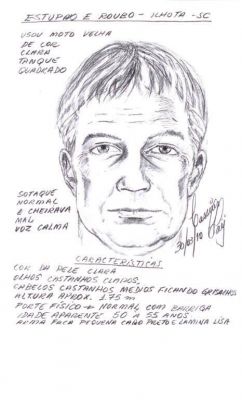 ESTUPRO E ROUBO - ILHOTA - SC
USOU MOTO VELHA
DE COR
CLARA
TANQUE
QUADRADO
SOTAQUE
NORMAL
E CHEIRAVA
MAL
VOZ CALMA
30/03/10
CARACTERÍSTICAS
COR DA PELE CLARA
OLHOS CASTANHOS CLAROS,
CABELOS CASTANHOS MEDIOS FICANDO GRISALHOS
ALTURA APROX. 1.75 m
PORTE FÍSICO → NORMAL, COM BARRIGA
IDADE APARENTE 50 A 55 ANOS
ARMA FACA PEQUENA CABO PRETO E LAMINA LISA